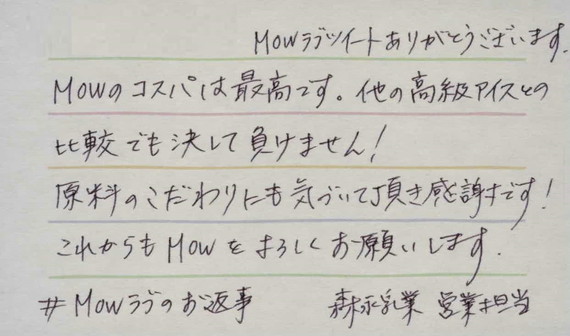 MOWラブツイートありがとうございます。
MOWのコスパは最高です。他の高級アイスとの
比較でも決して負けません!
原料のこだわりにも気づいて頂き感謝です!
これからもMOWをよろしくお願いします.
#MOWラブのお返事 森永乳業 営業担当